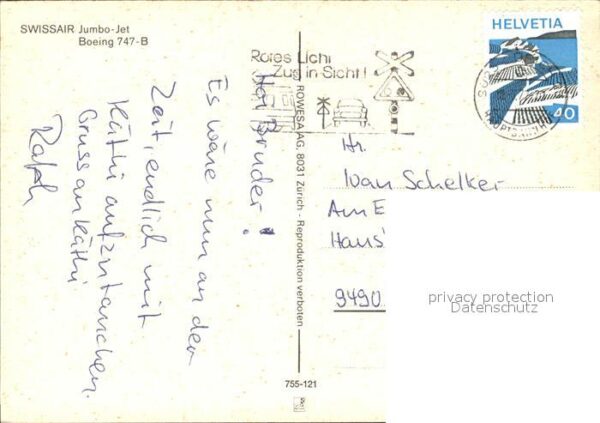 SWISSAIR Jumbo-Jet
Boeing 747-B
Rotes Licht
Zug in Sicht!
HELVETIA
40
Hoi Bruder!
Es wäre nun an der
Zeit, endlich mit
Käthi aufzutauchen.
Gruss an Käthi
Ralph
ROWESA AG, 8031 Zürich - Reproduktion verboten
755-121
Hr.
Ivan Schelker
Am E
Hans'
9490
privacy protection
Datenschutz